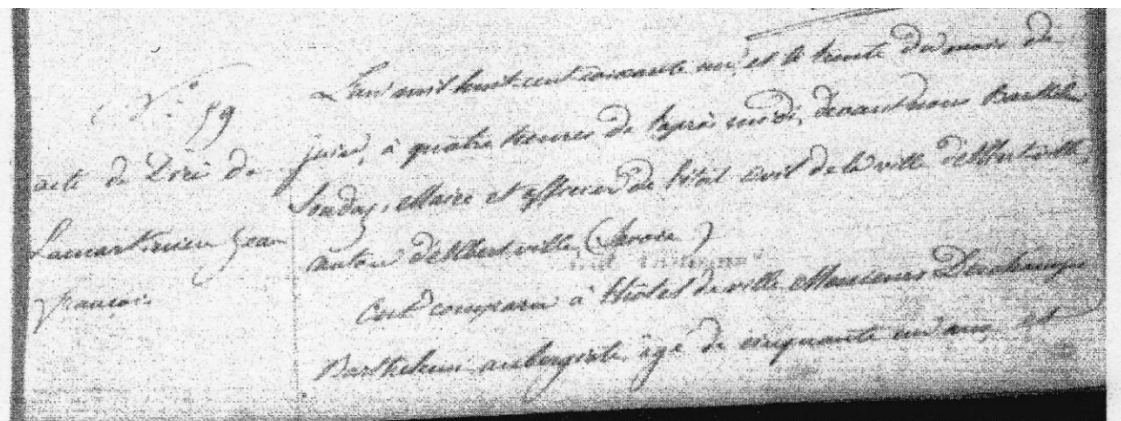 N.° 59
acte de Décès de
Lamartinien Jean
françois
L'an mil huit cent soixante un, et le trente du mois de
juin, à quatre heures de l'après midi, devant nous Barthél
Maire et officier de l'état civil de la ville d'Albertville,
canton d'Albertville, (Savoie)
Est comparu à l'hôtel de ville Monsieur Deschamps
Barthelemi aubergiste, âgé de cinquante un ans, et